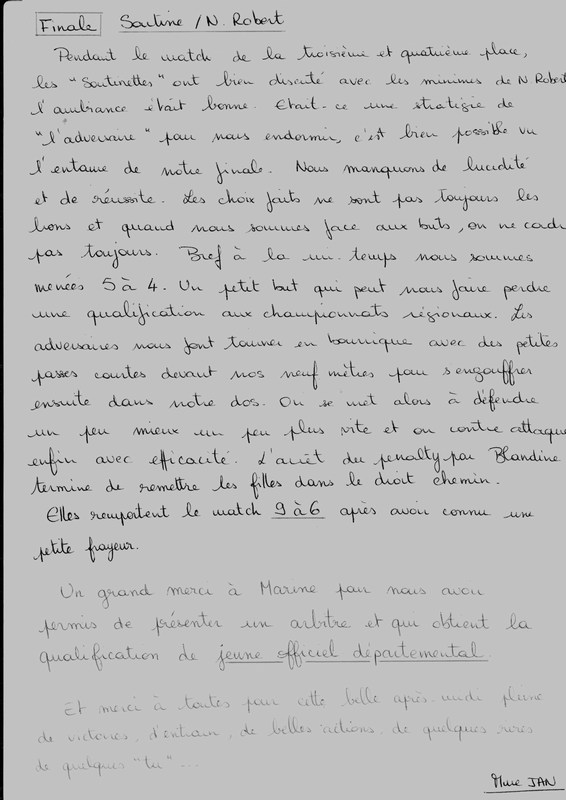 Finale Soutine / N. Robert
Pendant le match de la troisième et quatrième place,
les "Soutinettes" ont bien discuté avec les minimes de N Robert
l'ambiance était bonne. Etait-ce une stratégie de
"l'adversaire" pour nous endormir, c'est bien possible vu
l'entame de notre finale. Nous manquons de lucidité
et de réussite. Les choix faits ne sont pas toujours les
bons et quand nous sommes face aux buts, on ne cadre
pas toujours. Bref à la mi-temps nous sommes
menées 5 à 4. Un petit but qui peut nous faire perdre
une qualification aux championnats régionaux. Les
adversaires nous font tourner en bourrique avec des petites
passes courtes devant nos neuf mètres pour s'engouffrer
ensuite dans notre dos. On se met alors à défendre
un peu mieux un peu plus vite et on contre attaque
enfin avec efficacité. L'arrêt du penalty par Blandine
termine de remettre les filles dans le droit chemin.
Elles remportent le match 9 à 6 après avoir connu une
petite frayeur.
Un grand merci à Marine pour nous avoir
permis de présenter un arbitre et qui obtient la
qualification de jeune officiel départemental.
Et merci à toutes pour cette belle après-midi pleine
de victoires, d'entrain, de belles actions, de quelques
de quelques "tu"...
Mme JAN